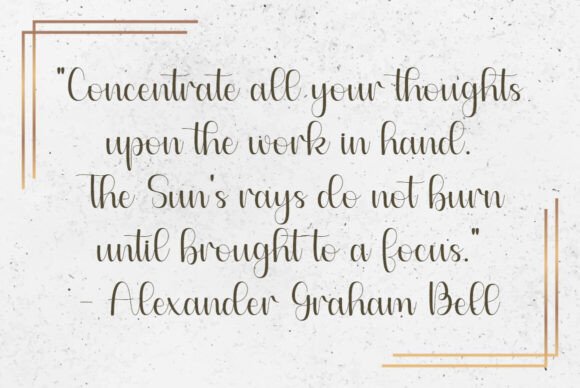 "Concentrate all your thoughts
upon the work in hand.
The Sun's rays do not burn
until brought to a focus."
- Alexander Graham Bell